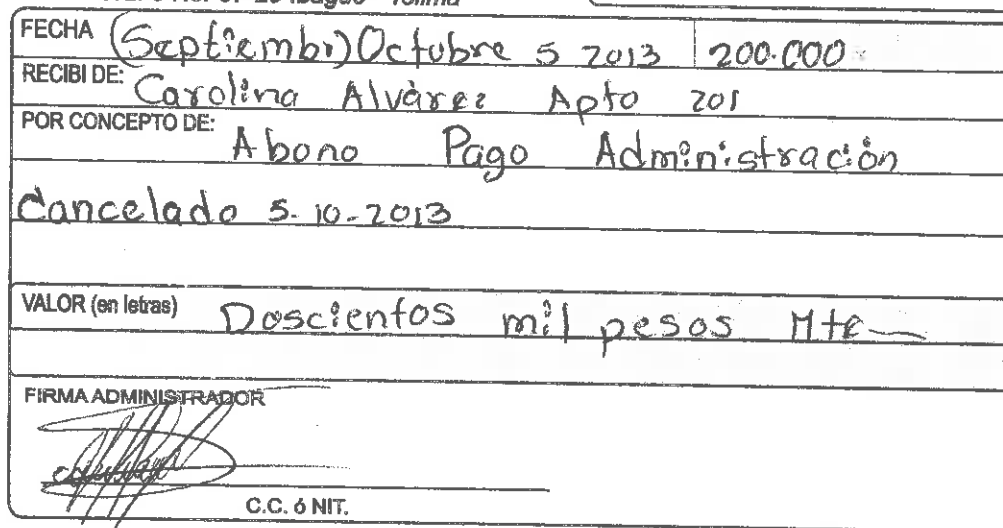 Ibagué - Tolima
FECHA (Septiembr) Octubre 5 2013 200.000
RECIBI DE: Carolina Alvàrez Apto 201
POR CONCEPTO DE: Abono Pago Administraciòn
Cancelado 5-10-2013
VALOR (en letras) Doscientos mil pesos Mte
FIRMA ADMINISTRADOR
C.C. ó NIT.